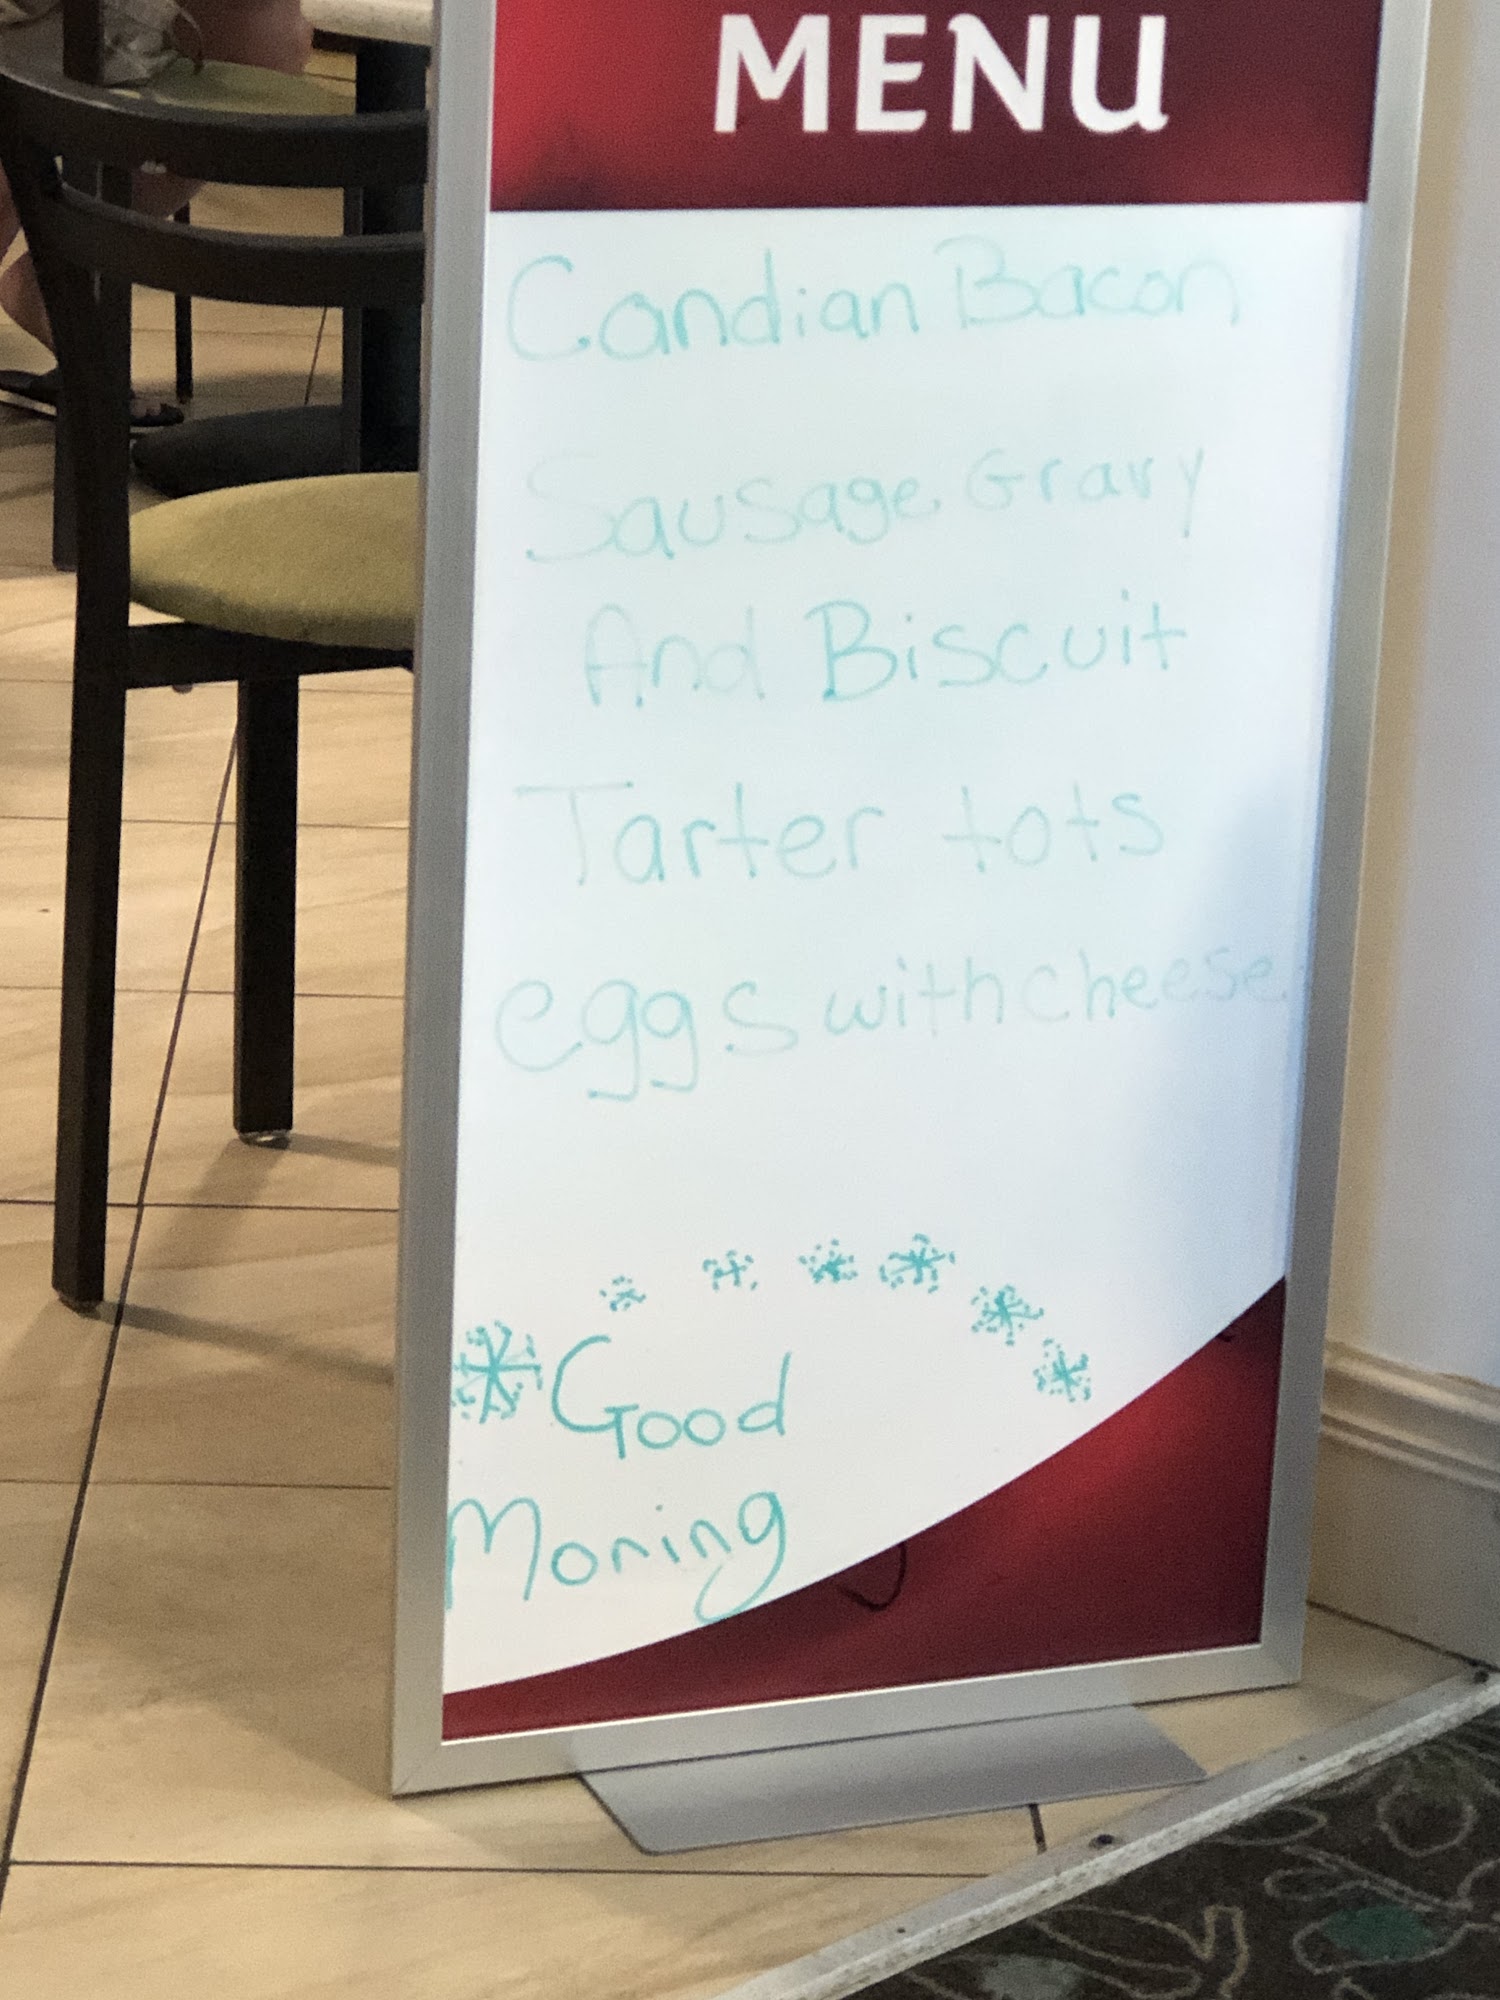 MENU
Candian Bacon
Sausage Gravy
And Biscuit
Tarter tots
eggs with cheese
Good
Moning